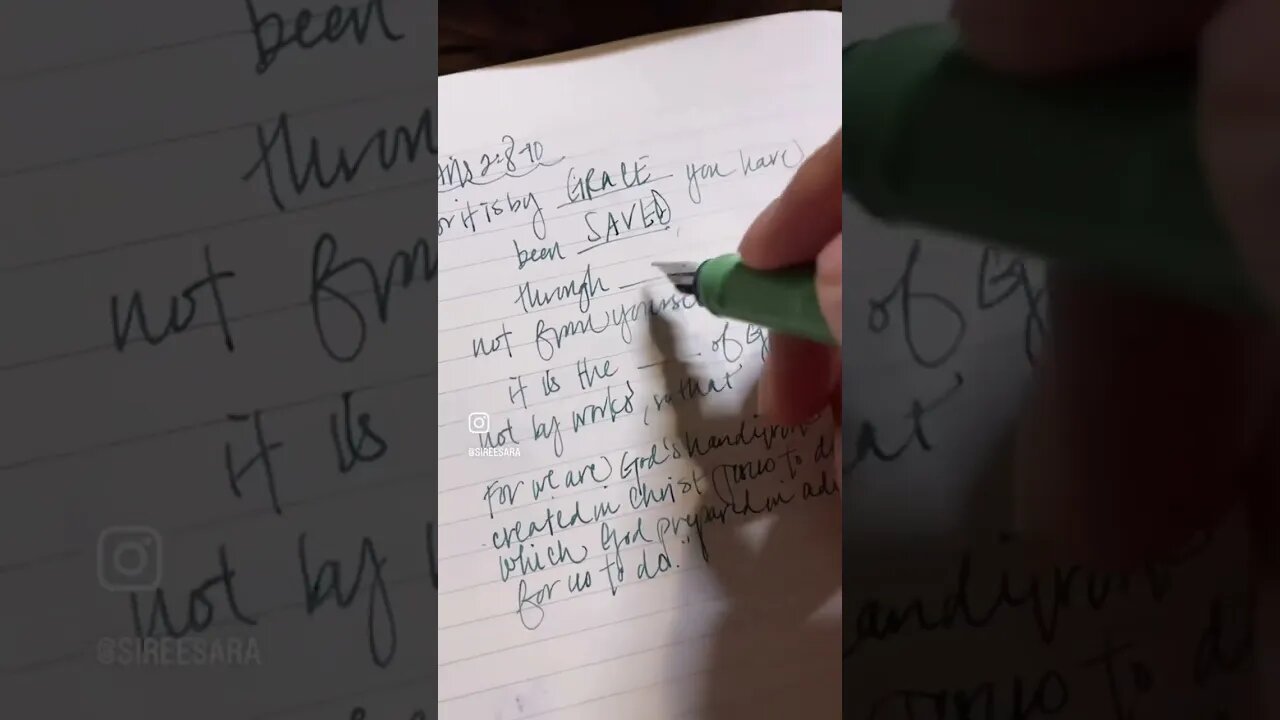 2:8-10
it is by GRACE you have
been SAVED
through
not from
it is the ____ of
not by works, so that
For we are God's
created in Christ to
which God prepared in
for us to do."
@SIREESARA